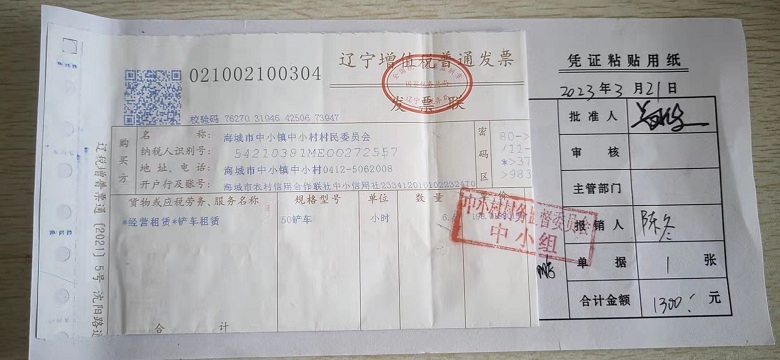 辽宁增值税普通发票
021002100304
发票联
校验码 76270 31946 42506 73947
凭证粘贴用纸
2023年3月21日
购买方
名 称: 海城市中小镇中小村村民委员会
纳税人识别号: 54210381ME00272557
地址、电话: 海城市中小镇中小村0412-5062008
开户行及账号: 海城市农村信用合作联社中小信用社
密码区
80->
/11-
*>37
>983
货物或应税劳务、服务名称 规格型号 单位 数量
*经营租赁*铲车租赁 50铲车 小时
合计
中小村村务监督委员会
中小组
批准人
审核
主管部门
报销人 陈冬
单据 1 张
合计金额 1300 元
辽税增普票通〔2021〕5号 沈阳